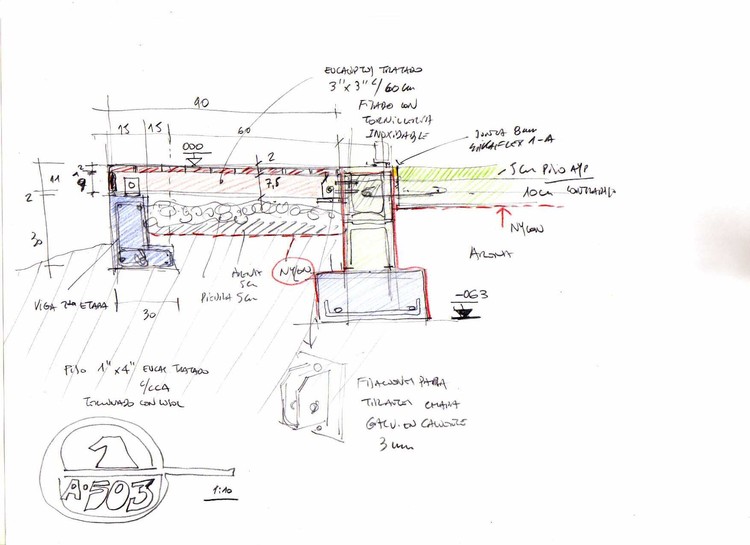 EUCALIPTUS TRATADO
3"x3" c/60cm
FIJADO CON
TORNILLERIA
INOXIDABLE
90
15
15
60
JUNTA 8mm
SIKAFLEX 1-A
000
2
2
11
9
7,5
5cm PISO A/P
10cm CONTRAPISO
2
NYLON
30
ARENA
ARENA
5cm
NYLON
PIEDRILLA 5cm
-063
VIGA 2da ETAPA
30
PISO 1"x4" EUCAL TRATADO
c/CCA
TERMINADO CON
FIJACIONES PARA
TIRANTES CHAPA
GALV. EN CALIENTE
3mm
1
A-503
1:10